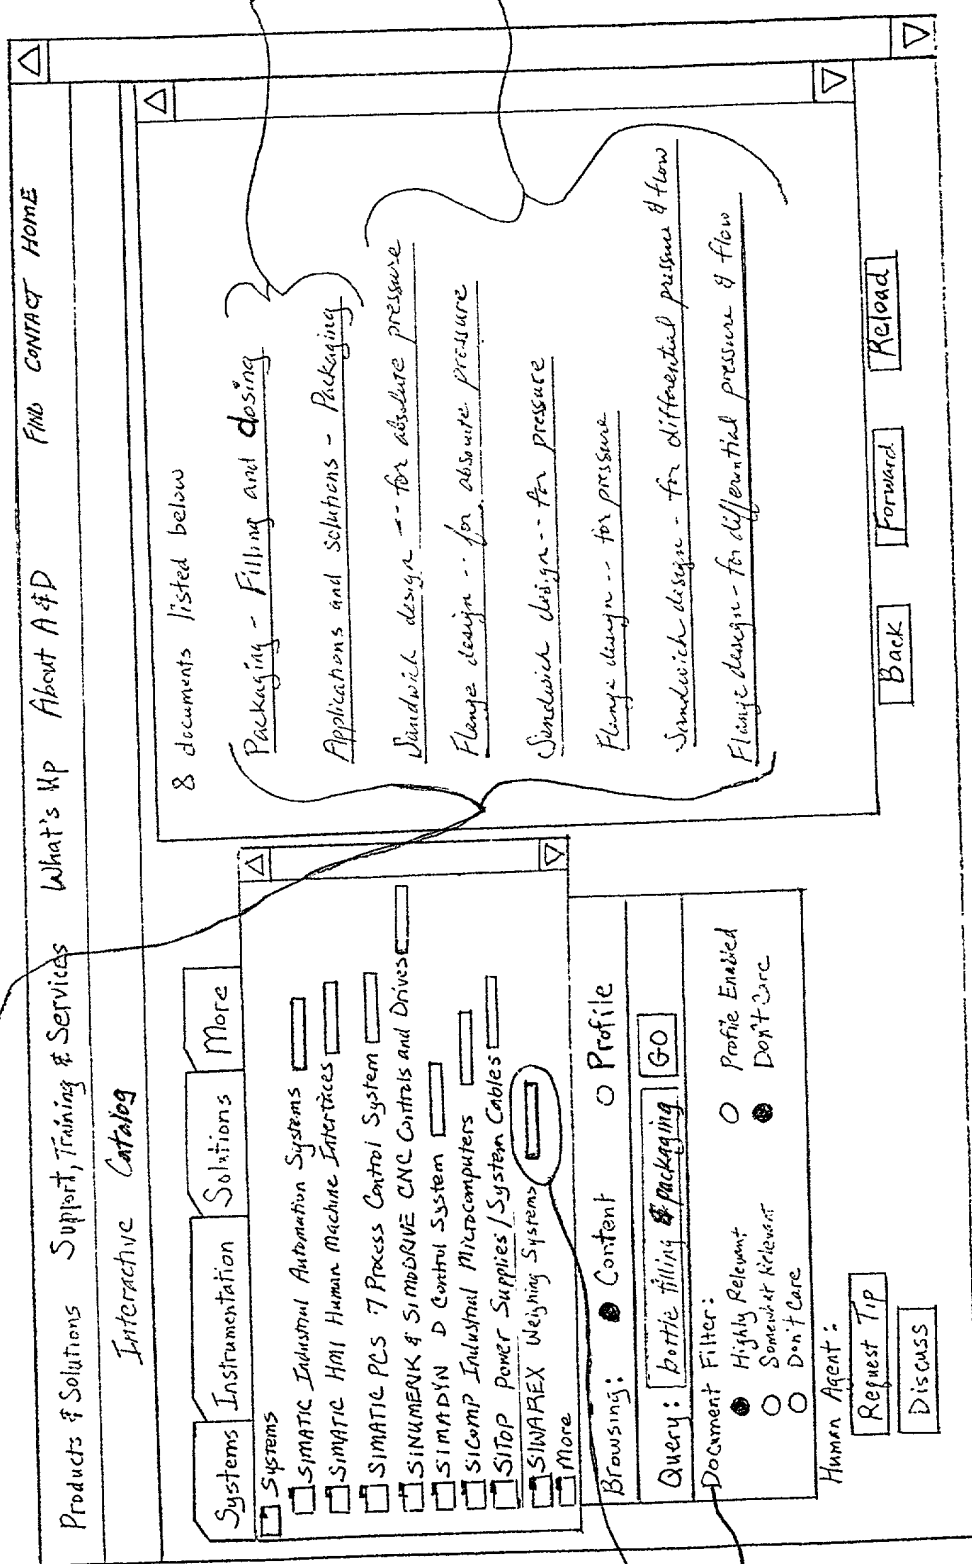 Products & Solutions Support, Training & Services What's Up About A&D FIND CONTACT HOME
Interactive Catalog
Systems Instrumentation Solutions More
Systems
SIMATIC Industrial Automation Systems
SIMATIC HMI Human Machine Interfaces
SIMATIC PCS 7 Process Control System
SINUMERIK & SIMODRIVE CNC Controls and Drives
SIMADYN D Control System
SICOMP Industrial Microcomputers
SITOP Power Supplies/System Cables
SIWAREX Weighing Systems
More
Browsing: Content Profile
Query: bottle filling & packaging GO
Document Filter:
Highly Relevant Profile Enabled
Somewhat Relevant Don't Care
Don't Care
Human Agent:
Request Tip
Discuss
8 documents listed below
Packaging - Filling and dosing
Applications and solutions - Packaging
Sandwich design -- for absolute pressure
Flange design -- for absolute pressure
Sandwich design -- for pressure
Flange design -- for pressure
Sandwich design - for differential pressure & flow
Flange design - for differential pressure & flow
Back Forward Reload